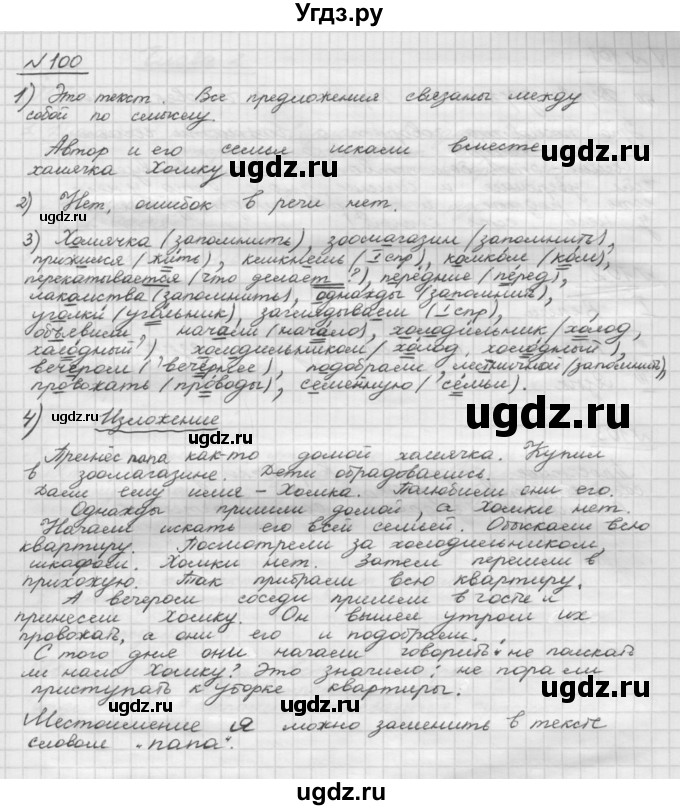 Угдз.ру
№100
1) Это текст. Все предложения связаны между
собой по смыслу.
Автор и его семья искали вместе
хомячка Хомку
ugdz.ru ugdz.ru
2) Нет, ошибок в речи нет.
ugdz.ru
3) Хомячка (запомнить), зоомагазин (запомнить),
прижился (жить), кликнешь (I спр), комком (ком),
перекатывается (что делает ?), передние (перед),
лакомства (запомнить), однажды (запомнить),
уголки (угольник), заглядываем (I спр),
объявили , начали (начало), холодильник (холод,
холодный ), холодильником (холод, холодный),
вечером ( вечернее), подобрали лестничной (запомнить),
провожать (проводы), семейную ( семьи).
ugdz.ru
4) Изложение
Принёс папа как-то домой хомячка. Купил
в зоомагазине. Дети обрадовались.
Дали ему имя – Хомка. Полюбили они его.
Однажды пришли домой, а Хомки нет.
Начали искать его всей семьёй. Обыскали всю
квартиру. Посмотрели за холодильником,
шкафом. Хомки нет. Затем перешли в
прихожую. Так прибрали всю квартиру.
А вечером соседи пришли в гости и
принесли Хомку. Он вышел утром их
провожать, а они его и подобрали.
С того дня они начали говорить: не поискать
ли нам Хомку? Это значило: не пора ли
приступать к уборке квартиры.
Местоимение я можно заменить в тексте
словом "папа".
ugdz.ru